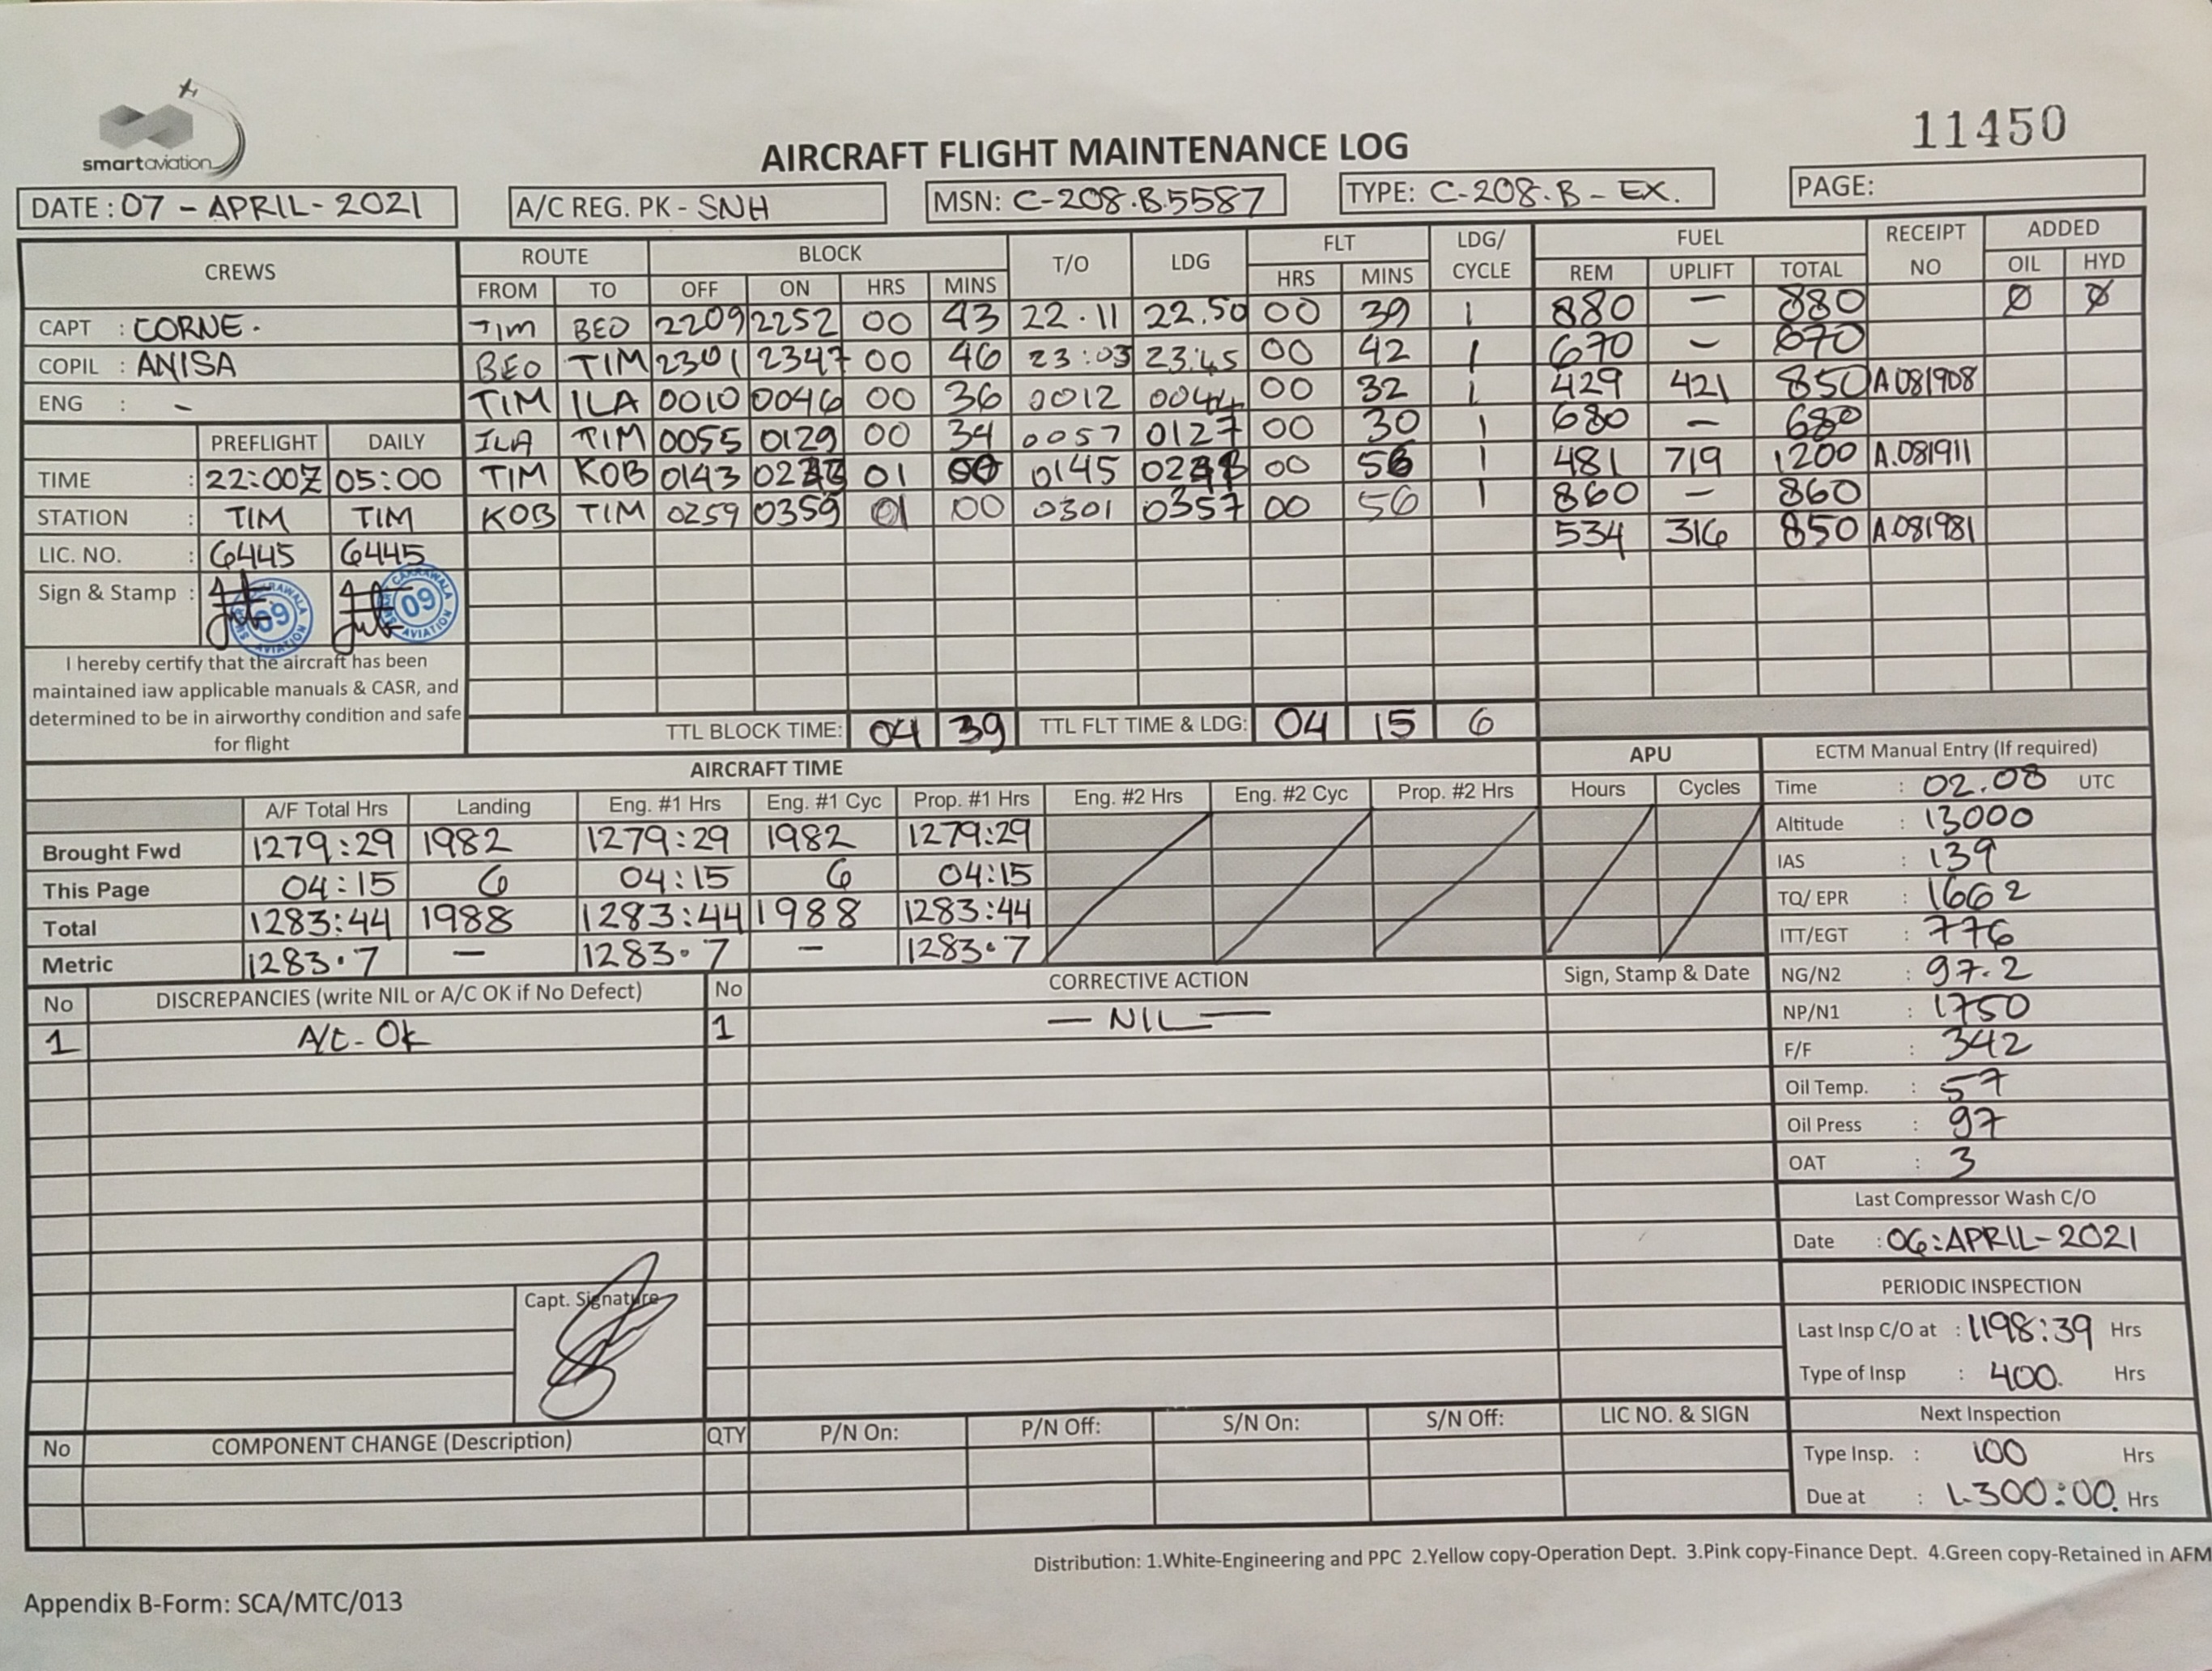 smartaviation
11450
AIRCRAFT FLIGHT MAINTENANCE LOG
DATE : 07 - APRIL - 2021 A/C REG. PK - SNH MSN: C-208.B.5587 TYPE: C-208.B - EX. PAGE:
CREWS ROUTE BLOCK T/O LDG FLT LDG/ CYCLE FUEL RECEIPT NO ADDED
FROM TO OFF ON HRS MINS HRS MINS REM UPLIFT TOTAL OIL HYD
CAPT : CORNE. TIM BEO 2209 2252 00 43 22.11 22.50 00 39 1 880 - 880 Ø Ø
COPIL : ANISA BEO TIM 2301 2347 00 46 23:03 23:45 00 42 1 670 - 670
ENG : - TIM ILA 0010 0046 00 36 0012 0044 00 32 1 429 421 850 A081908
PREFLIGHT DAILY ILA TIM 0055 0129 00 34 0057 0127 00 30 1 680 - 680
TIME : 22:00Z 05:00 TIM KOB 0143 01 0145 00 56 1 481 719 1200 A.081911
STATION : TIM TIM KOB TIM 0259 0359 01 00 0301 0357 00 56 1 860 - 860
534 316 850 A.081981
LIC. NO. : 6445 6445
Sign & Stamp : 09 AVIATION 09 AVIATION
I hereby certify that the aircraft has been
maintained iaw applicable manuals & CASR, and
determined to be in airworthy condition and safe
for flight
TTL BLOCK TIME: 04 39 TTL FLT TIME & LDG: 04 15 6
AIRCRAFT TIME APU
A/F Total Hrs Landing Eng. #1 Hrs Eng. #1 Cyc Prop. #1 Hrs Eng. #2 Hrs Eng. #2 Cyc Prop. #2 Hrs Hours Cycles
Brought Fwd 1279:29 1982 1279:29 1982 1279:29
This Page 04:15 6 04:15 6 04:15
Total 1283:44 1988 1283:44 1988 1283:44
Metric 1283.7 - 1283.7 - 1283.7
ECTM Manual Entry (If required)
Time : 02.08 UTC
Altitude : 13000
IAS : 139
TQ/ EPR : 1662
ITT/EGT : 776
NG/N2 : 97.2
NP/N1 : 1750
F/F : 342
Oil Temp. : 57
Oil Press : 97
OAT : 3
Last Compressor Wash C/O
Date : 06:APRIL-2021
PERIODIC INSPECTION
Last Insp C/O at : 1198:39 Hrs
Type of Insp : 400. Hrs
Next Inspection
Type Insp. : 100 Hrs
Due at : 1.300:00. Hrs
No DISCREPANCIES (write NIL or A/C OK if No Defect) No CORRECTIVE ACTION Sign, Stamp & Date
1 A/C - OK 1 - NIL -
Capt. Signature
No COMPONENT CHANGE (Description) QTY P/N On: P/N Off: S/N On: S/N Off: LIC NO. & SIGN
Distribution: 1.White-Engineering and PPC 2.Yellow copy-Operation Dept. 3.Pink copy-Finance Dept. 4.Green copy-Retained in AFM
Appendix B-Form: SCA/MTC/013